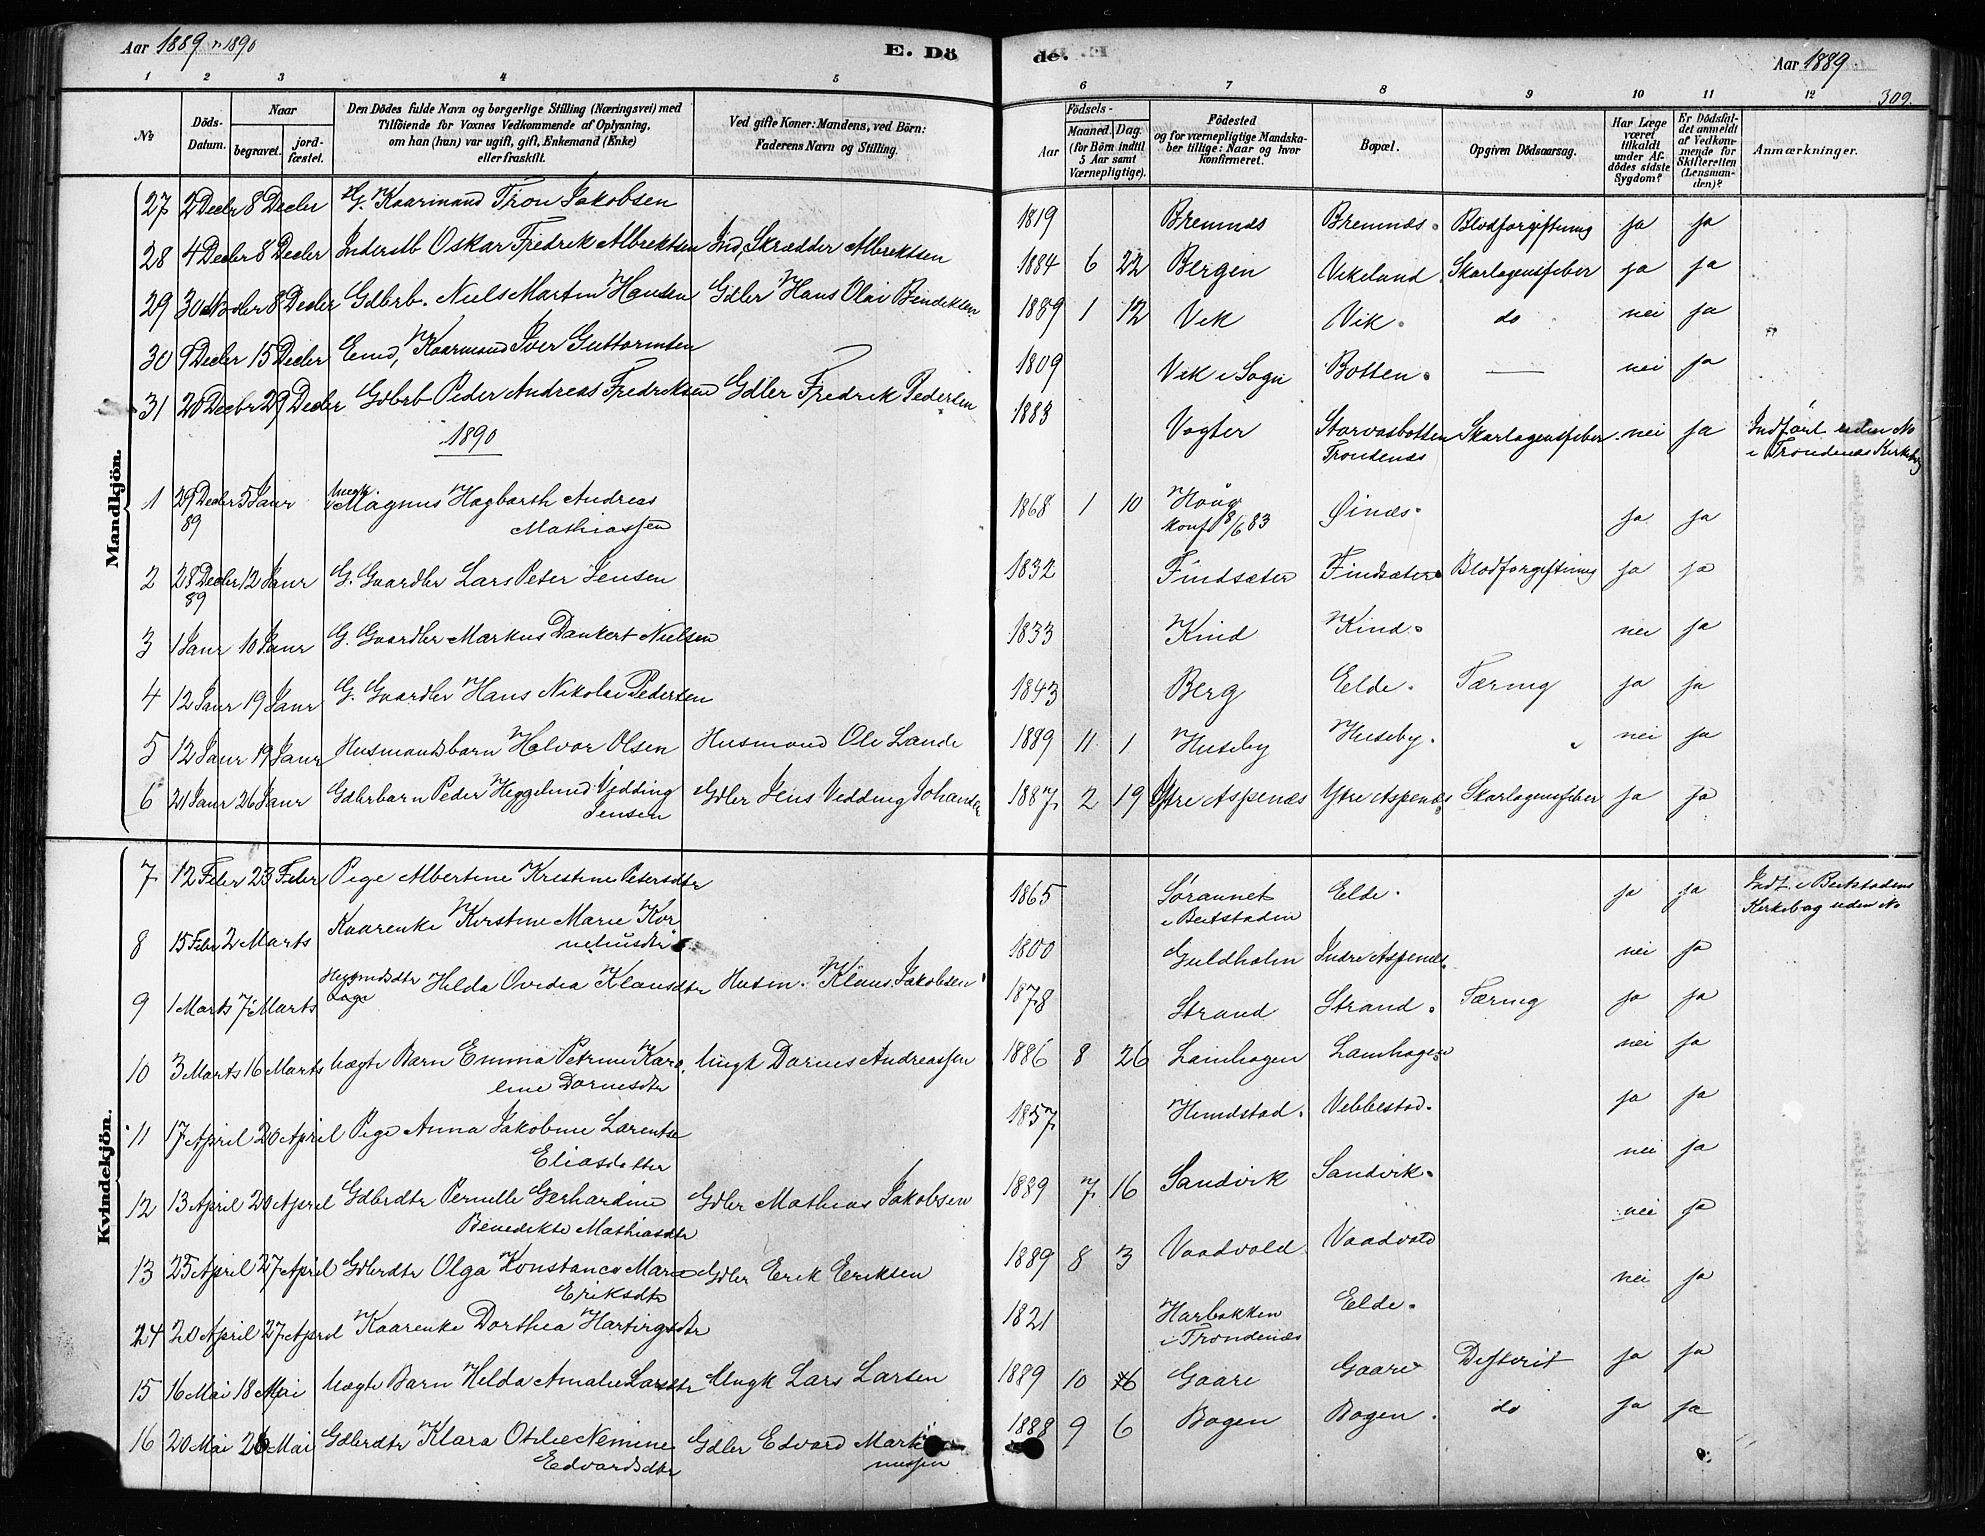 Aar 1889 n 1890
E. Dö
de.
Aar 1889
309.
1 2 3 4 5 6 7 8 9 10 11 12
No
Döds-
Datum.
Naar
begravet.
jord-
fæstet.
Den Dödes fulde Navn og borgerlige Stilling (Næringsvei) med
Tilföiende for Voxnes Vedkommende af Oplysning,
om han (hun) var ugift, gift, Enkemand (Enke)
eller fraskilt.
Ved gifte Koner: Mandens, ved Börn:
Faderens Navn og Stilling.
Födsels-
Aar
Maaned.
Dag.
(for Börn indtil
5 Aar samt
Værnepligtige).
Födested
og for værnepligtige Mandska-
ber tillige: Naar og hvor
konfirmeret.
Bopæl.
Opgiven Dödsaarsag.
Har Læge
været
tilkaldt
under Af-
dödes sidste
Sygdom?
Er Dödsfal-
det anmeldt
af Vedkom-
mende for
Skifteretten
(Lensman-
den)?
Anmærkninger.
Mandkjön.
27 2 Decbr 8 Decbr G. Kaarmand Tron Jakobsen 1819 Bremnds Bremnds. Blodforgiftning ja ja
28 4 Decbr 8 Decbr Inderstb Oskar Fredrik Albrektsen Ind, Skrædder Albrektsen 1884 6 22 Bergen Vikeland Skarlagensfeber ja ja
29 30 Nvbr 8 Decbr Gdbrb. Niels Martin Hansen Gdbr Hans Olai Bendiktsen 1889 1 12 Vik Vik. do nei ja
30 9 Decbr 15 Decbr Emd, Kaarmand Iver Guttormsen 1809 Vik i Sogn Botten. — nei ja
31 20 Decbr 29 Decbr Gdbrb Peder Andreas Fredriksen Gdbr Fredrik Pedersen 1883 Vogter Storvasbotten Skarlagensfeber nei ja Indført uden No
Trondenæs
i Trondenæs Kirkebog
1890
1 29 Decbr 5 Janr Ungk. Magnus Hagbarth Andreas 1868 1 10 Haug Øinæs. ja ja
89 Mathiassen konf 18/6 83
2 28 Decbr 12 Janr G. Gaardbr Lars Peter Jensen 1832 Findsæter Findsæter. Blodforgiftning ja ja
89
3 1 Janr 10 Janr G. Gaardbr Markus Dankert Nielsen 1833 Kind Kind. nei ja
4 12 Janr 19 Janr G. Gaardbr Hans Nikolai Pedersen 1843 Berg Elde. Tæring ja ja
5 12 Janr 19 Janr Husmandsbarn Halvor Olsen Husmand Ole Lande 1889 11 1 Huseby Huseby. nei ja
6 21 Janr 26 Janr Gdbrbarn Peder Heggelund Vedding Gdbr Jens Vedding Johans 1887 2 19 Ytre Aspenæs Ytre Aspenæs Skarlagensfeber ja ja
Jensen
Kvindekjön.
7 12 Febr 23 Febr Pige Albertine Kristine Petersdtr 1865 Sørannet Elde. ja ja Indf. i Beitstadens
i Beitstaden
Kirkebog uden No
8 15 Febr 2 Marts Kaarenke Kirstine Marie Kor 1800 Guldholm Indre Aspenæs. nei ja
neliusdtr
9 1 Marts 7 Marts Husmdsdtr Hilda Ovedia Klausdtr Husm. Klaus Jakobsen 1878 Strand Strand. Tæring ja ja
10 3 Marts 16 Marts Uægte Barn Emma Petrine Karo Ungk Dorius Andreassen 1886 8 26 Lamhagen Lamhagen nei ja
line Doriusdtr
11 17 April 20 April Pige Anna Jakobine Larentse 1857 Hemdstad. Vebbestad. ja ja
Eliasdatter
12 13 April 20 April Gdbrdtr Pernelle Gerhardine Gdbr Mathias Jakobsen 1889 7 16 Sandvik Sandvik. nei ja
Benedikte Mathiasdtr
13 25 April 27 April Gdbrdtr Olga Konstance Marie Gdbr Erik Eriksen 1889 8 3 Vaadvold Vaadvold nei ja
Eriksdtr
24 20 April 27 April Kaarenke Dorthea Hartvigsdtr 1821 Harbakken Elde. nei ja
i Trondenæs
15 16 Mai 18 Mai Uægte Barn Hilda Amalie Larsdtr Ungk Lars Larsen 1889 10 6 Gaare Gaare Difterit ja ja
16 20 Mai 26 Mai Gdbrdtr Klara Otilie Nemine Gdbr Edvard Marki 1888 9 6 Bogen Bogen. do ja ja
Edvardsdtr
nussen